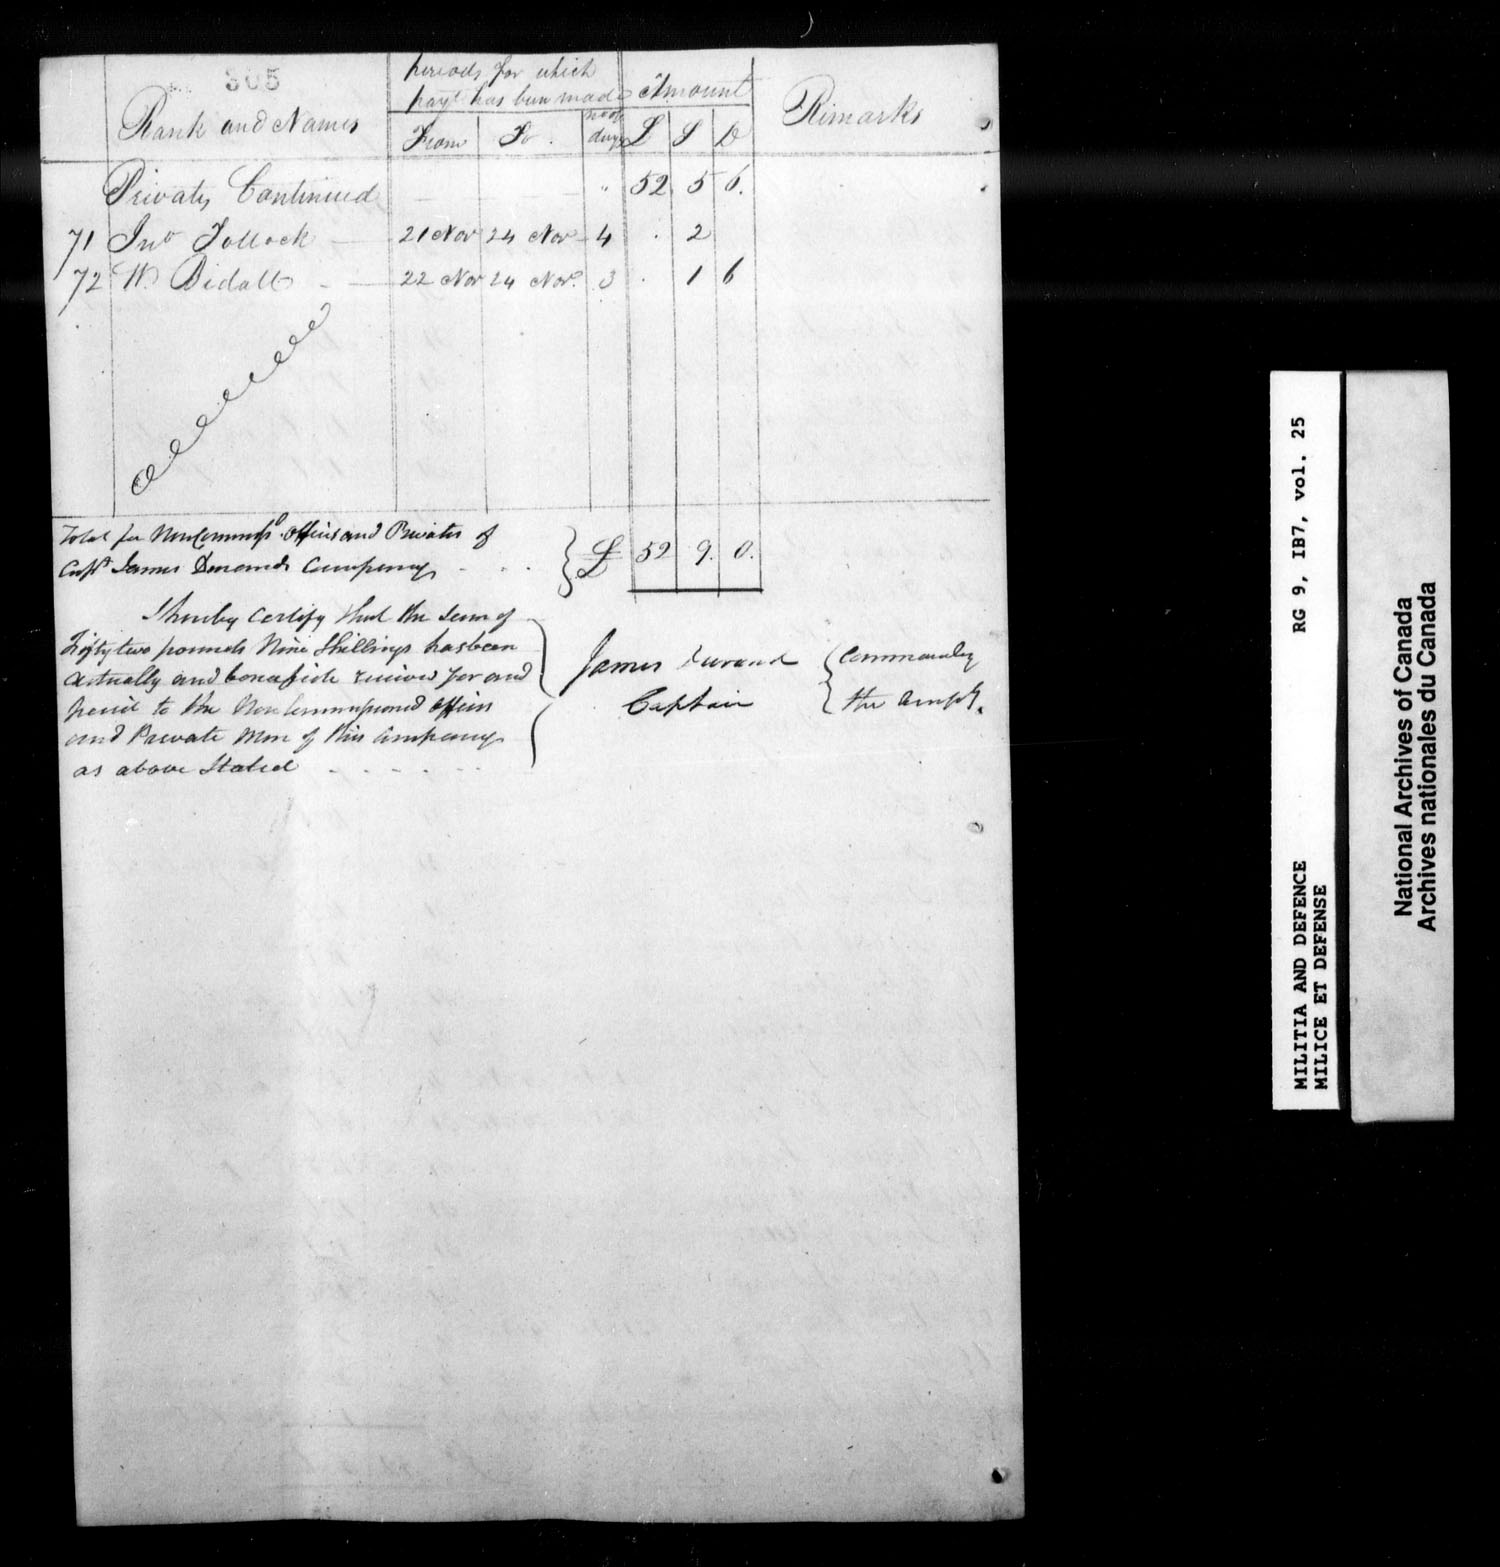 305
Rank and Names
periods for which
payt has been made
From To no of days
Amount
£ S D
Remarks
Privates Continued " 52 5 6.
71 Jno Tollock 21 Nov 24 Nov 4 . 2
72 W. Bidall 22 Nov 24 Nov. 3 . 1 6
Total for NonCommisd Officers and Privates of
Capt James Durands Company . . . £ 52 9. 0.
I hereby Certify that the Sum of
Fifty two pounds Nine Shillings has been
actually and bonafide received for and
paid to the Non Commissioned Officers
and Private Men of this Company
as above Stated
James Durand
Captain
Commanding
the Compy.
RG 9, IB7, vol. 25
MILITIA AND DEFENCE
MILICE ET DEFENSE
National Archives of Canada
Archives nationales du Canada